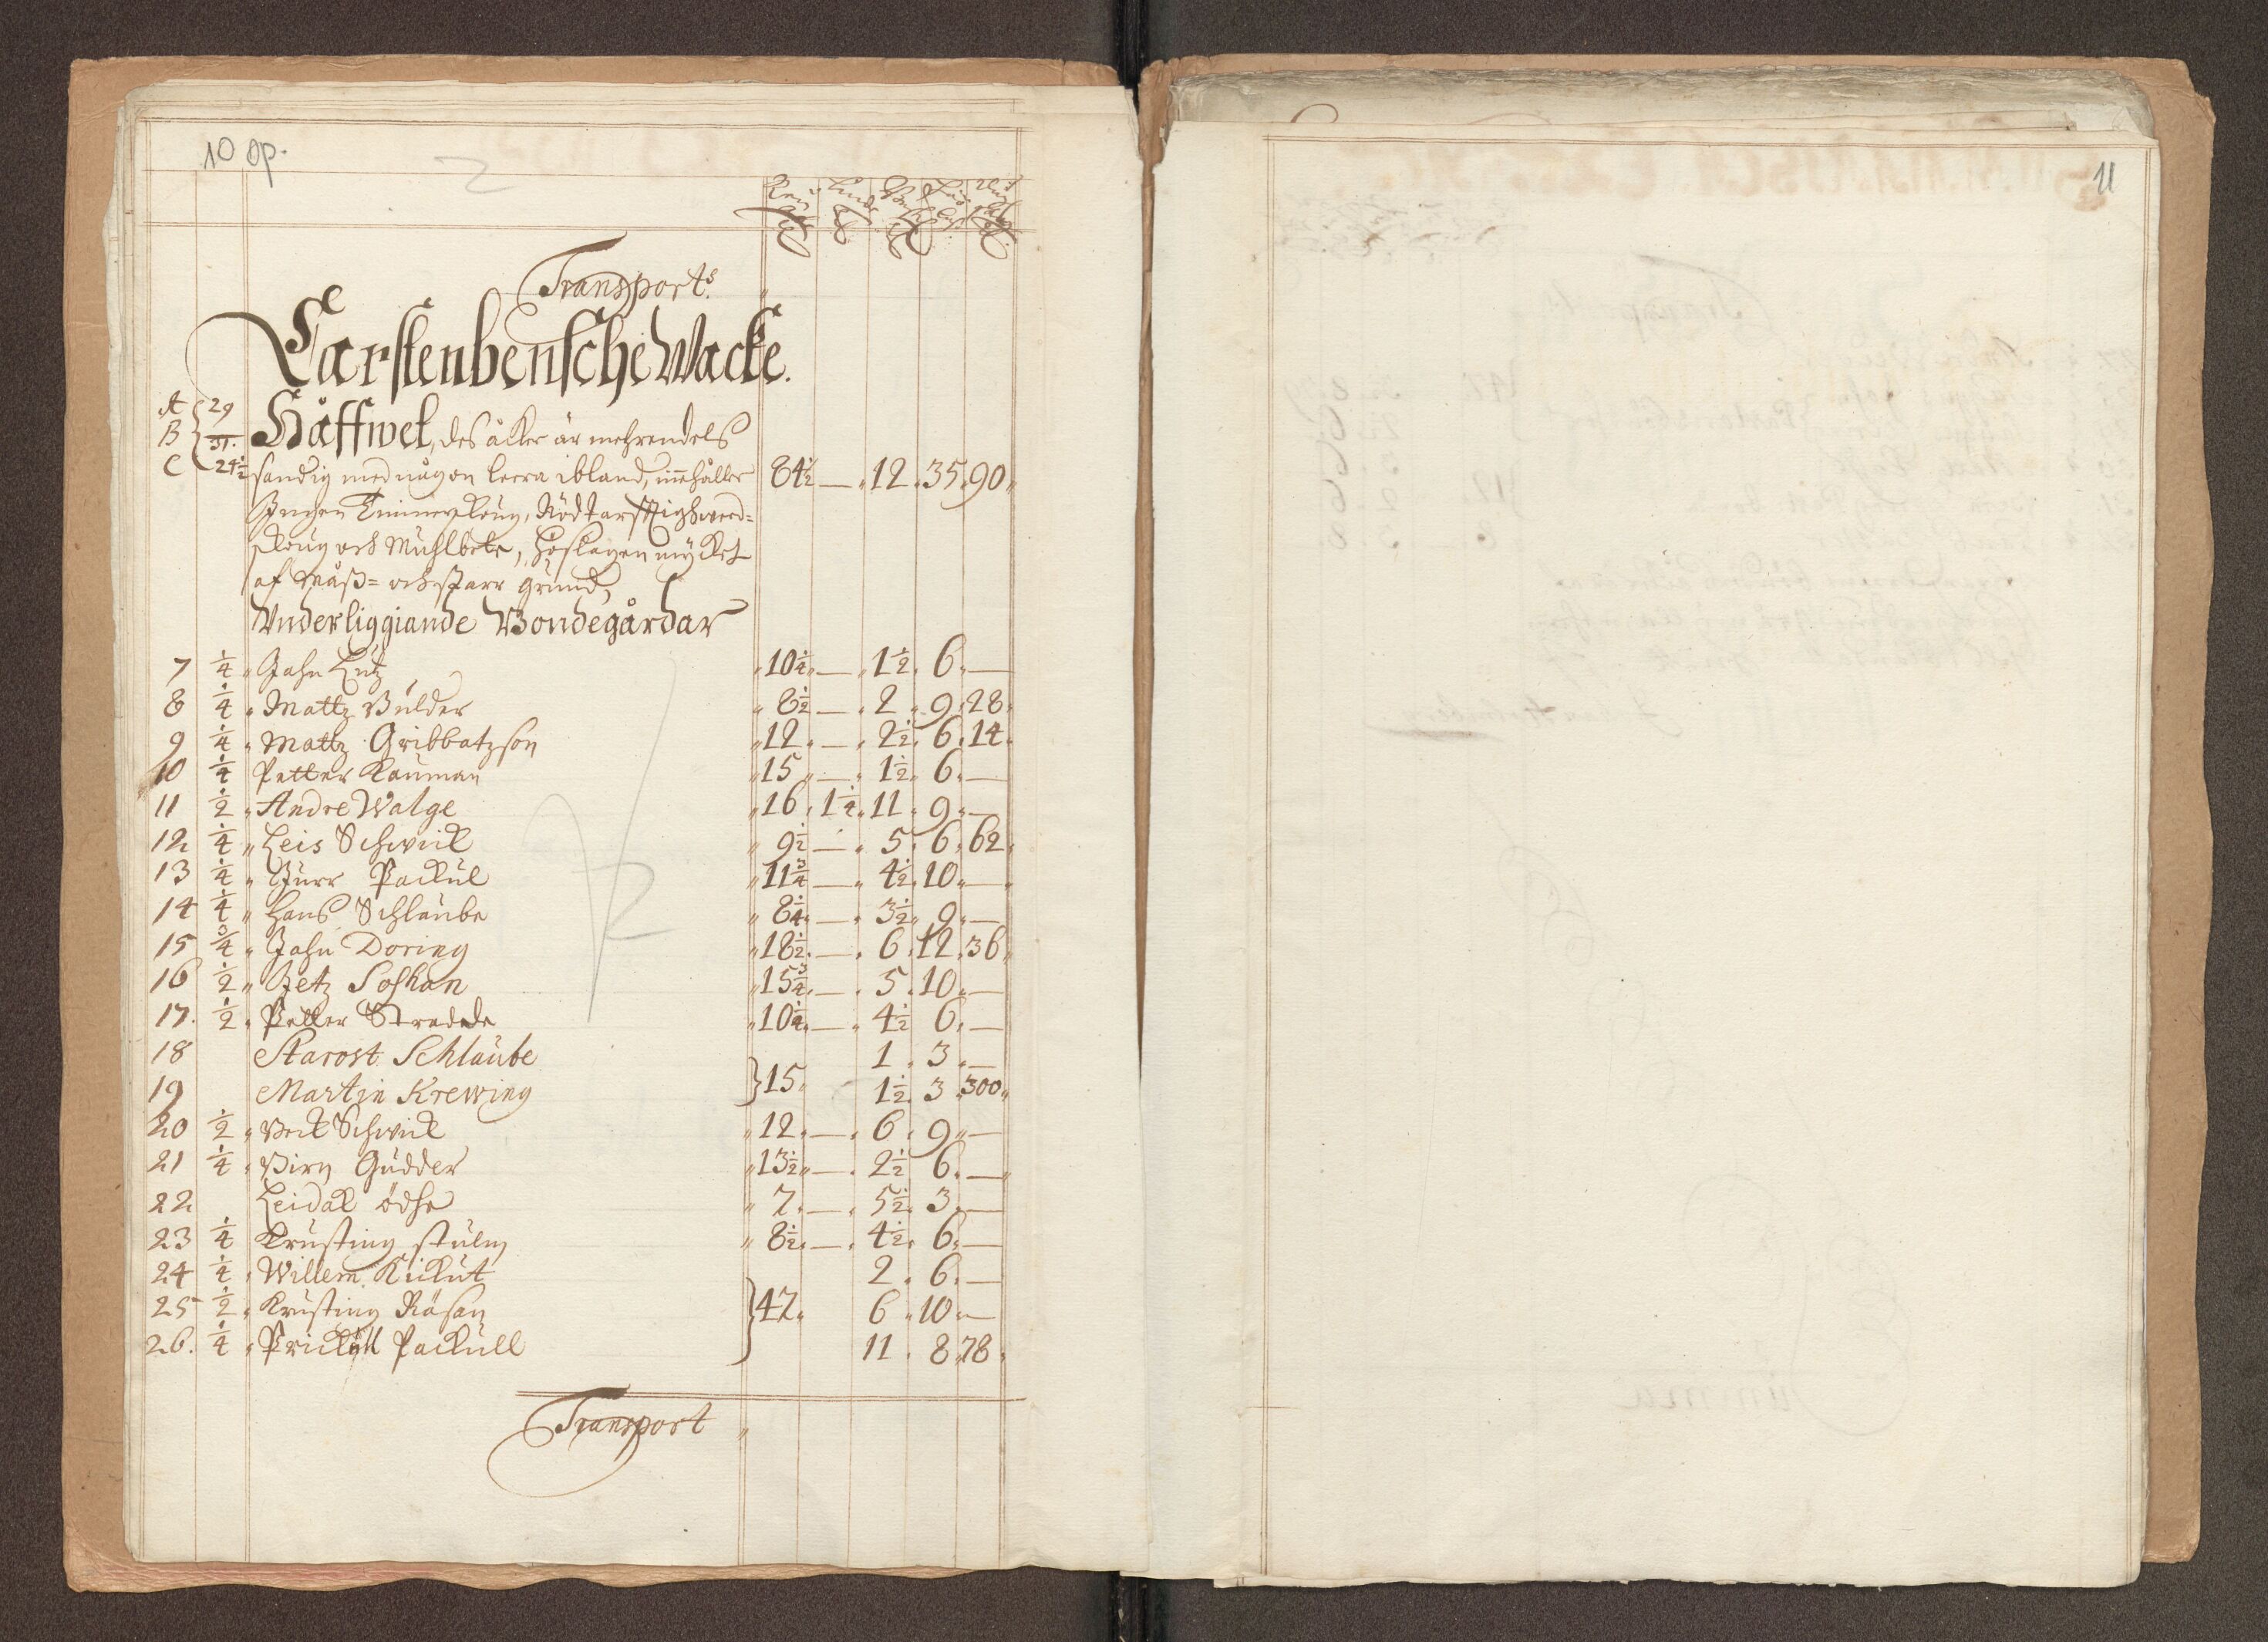 10 op.
11
Transport.
Carstenbensche Wacke.
A 29
B 31. Håffwet, des åcker är mehrendels
C 24½ sandig med någon leera ibland, innehåller 84½ — 12. 35. 90
Ingen Timmerskoug, Nödtorfftigh weed=
skoug och Muhlbete, Höslagen mycket
af Måss= och starr grund,
Vnderliggiande Bondegårdar
7 ¼ Jahn Lutz 10¼ — 1½ 6. —
8 ¼ Mattz Bulder 8½ — 2 9. 28
9 ¼ Mattz Gribbatzson 12. — 2½ 6. 14.
10 ¼ Petter Kauman 15 — 1½ 6. —
11 ½ Andre Walge 16. 1¼ 11. 9. —
12 ¼ Leis Schwik 9½ — 5. 6. 62
13 ¼ Jurr Packul 11¾ — 4½ 10. —
14 ¼ Hans Schlaube 8¼ — 3½ 9. —
15 ¾ Jahn Doring 18½ — 6. 12. 36
16 ½ Jetz Soskan 15¾ — 5. 10. —
17. ½ Petter Stradede 10¼ — 4½ 6. —
18 Starost Schlaube 1. 3. —
19 Martin Krewing } 15. 1½ 3. 300
20 ½ Schwik 12. — 6. 9. —
21 ¼ Birn Gudder 13½ — 2½ 6. —
22 Leidak ödhe 7. — 5½ 3. —
23 ¼ Krusting stulm 8½ — 4½ 6. —
24 ¼ Willem Kikut 2. 6. —
25 ½ Krusting Räsan } 47. 6. 10. —
26. ¼ Packull 11. 8. 78
Transport